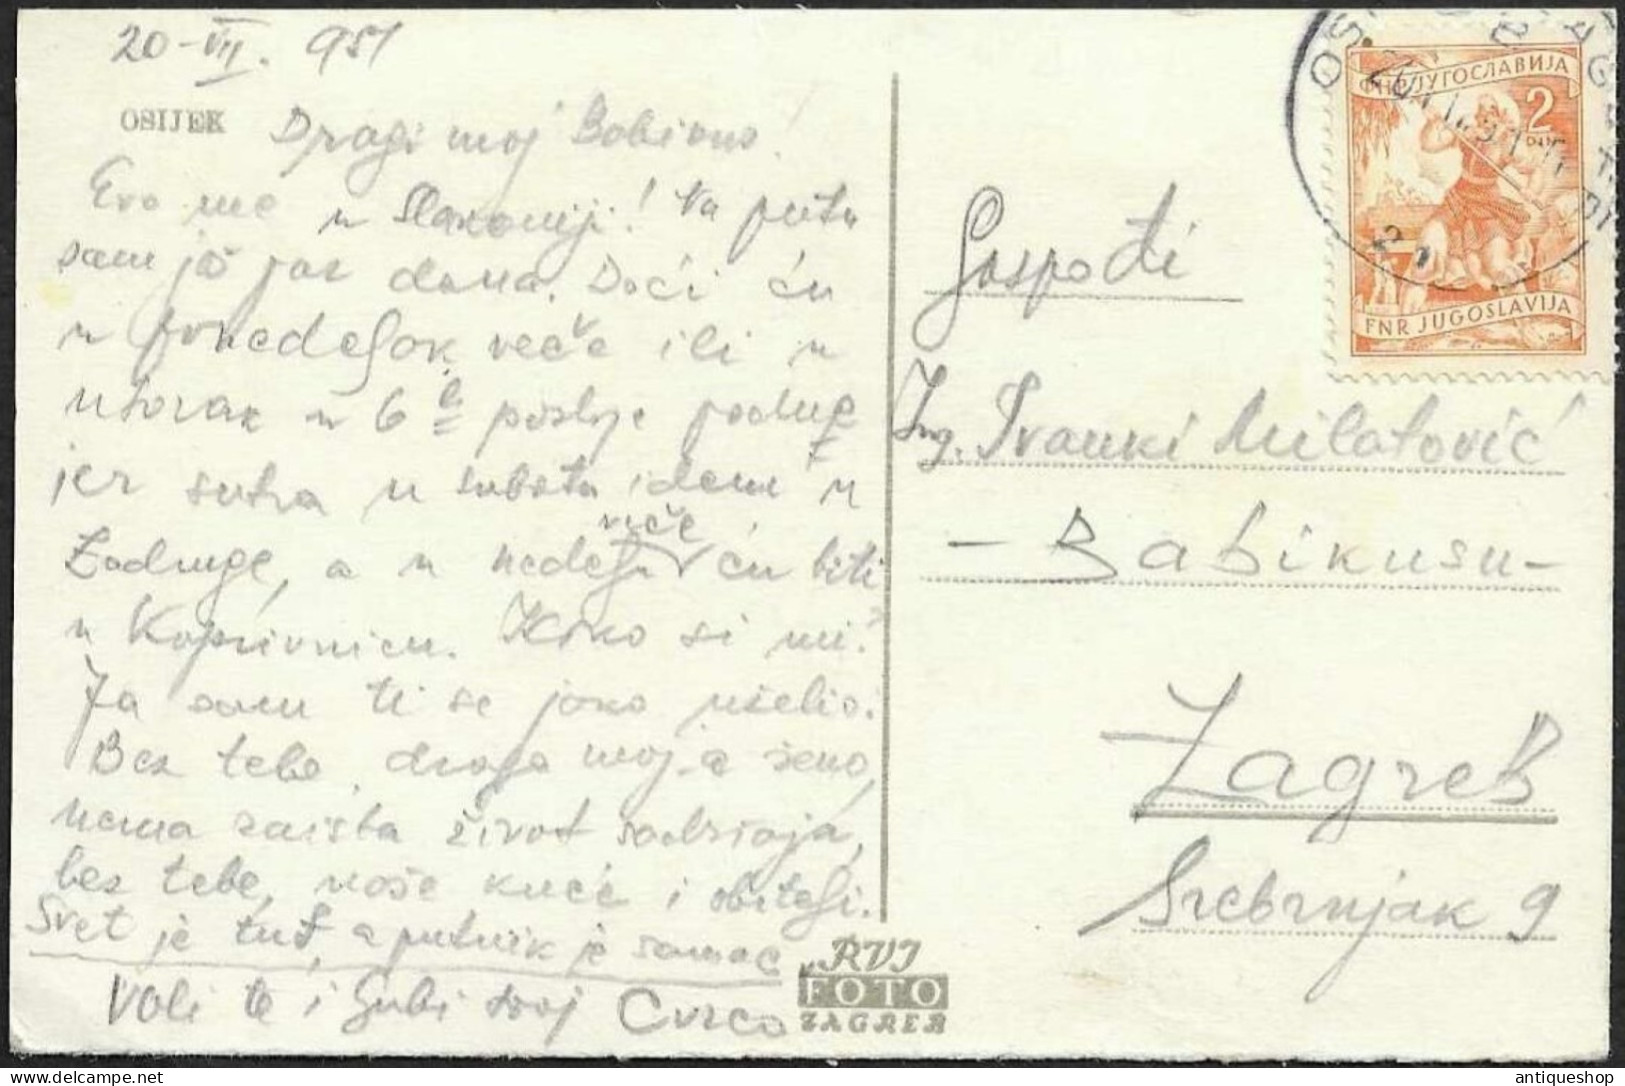 20-VII. 951
OSIJEK
Dragi moj
Evo me u Slavoniji! Na putu
sam još par dana. Doći ću
u ponedeljak veče ili u
utorak u 6 h poslije podne
jer sutra u subotu idem u
Zadruge, a u nedelju veče ću biti
u Koprivnicu. Kako si mi?
Ja sam ti se jako uželio.
Bez tebe, draga moja ženo,
nema zaista život sadržaja,
bez tebe, naše kuće i obitelji.
Svet je tuđ, a putnik je samac
Voli te i ljubi tvoj Cvrco
„RVI
FOTO
ZAGREB
ФНР ЈУГОСЛАВИЈА
2
DIN
FNR JUGOSLAVIJA
Gospođi
Ing. Ivanki Milatović
- Babikusu -
Zagreb
Srebrnjak 9
antiqueshop